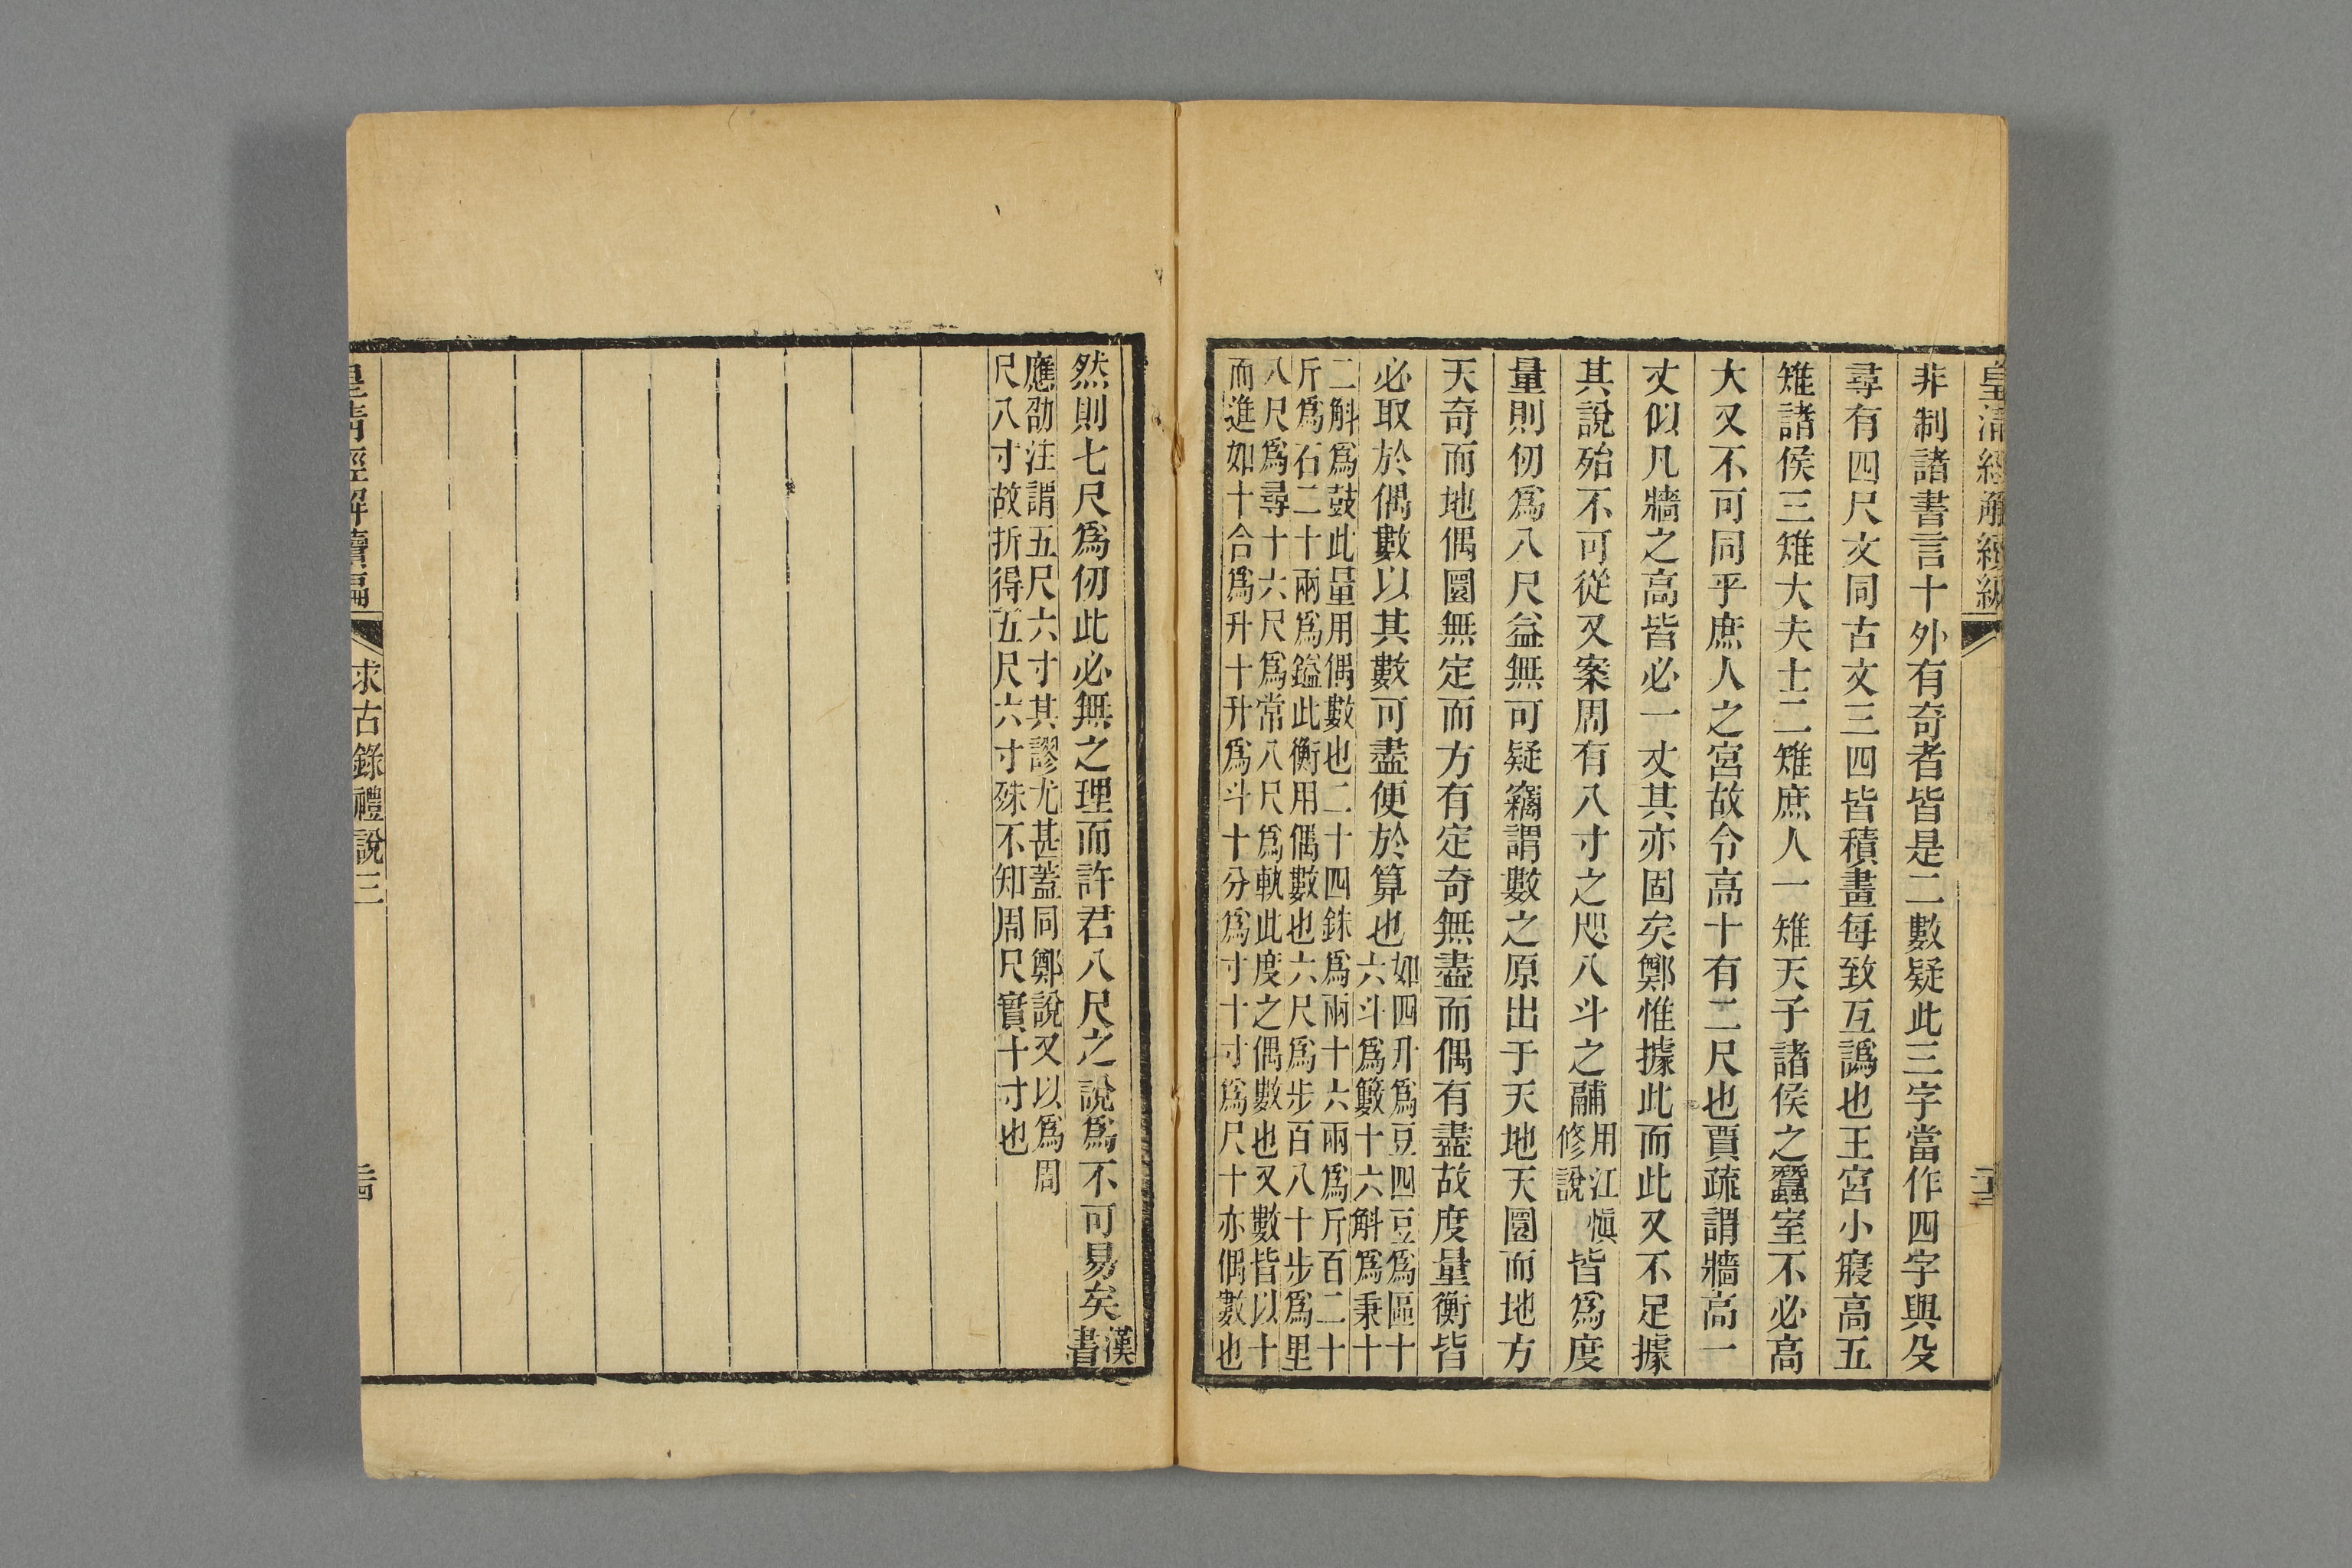 皇清經解續編
非制諸書言十外有奇者皆是二數疑此三字當作四字與殳
尋有四尺文同古文三四皆積畫每致互譌也王宮小寢高五
雉諸侯三雉大夫士二雉庶人一雉天子諸侯之蠶室不必高
大又不可同乎庶人之宮故令高十有二尺也賈疏謂牆高一
丈似凡牆之高皆必一丈其亦固矣鄭惟據此而此又不足據
其說殆不可從又案周有八寸之咫八斗之鬴用江愼修說皆爲度
量則仞爲八尺益無可疑竊謂數之原出于天地天圜而地方
天奇而地偶圜無定而方有定奇無盡而偶有盡故度量衡皆
必取於偶數以其數可盡便於算也如四升爲豆四豆爲區十六斗爲籔十六斛爲秉十
二斛爲鼓此量用偶數也二十四銖爲兩十六兩爲斤百二十
斤爲石二十兩爲鎰此衡用偶數也六尺爲步百八十步爲里
八尺爲尋十六尺爲常八尺爲軌此度之偶數也又數皆以十
而進如十合爲升十升爲斗十分爲寸十寸爲尺十亦偶數也
然則七尺爲仞此必無之理而許君八尺之說爲不可易矣漢書
應劭注謂五尺六寸其謬尤甚蓋同鄭說又以爲周
尺八寸故折得五尺六寸殊不知周尺實十寸也
皇清經解續編
求古錄禮說三